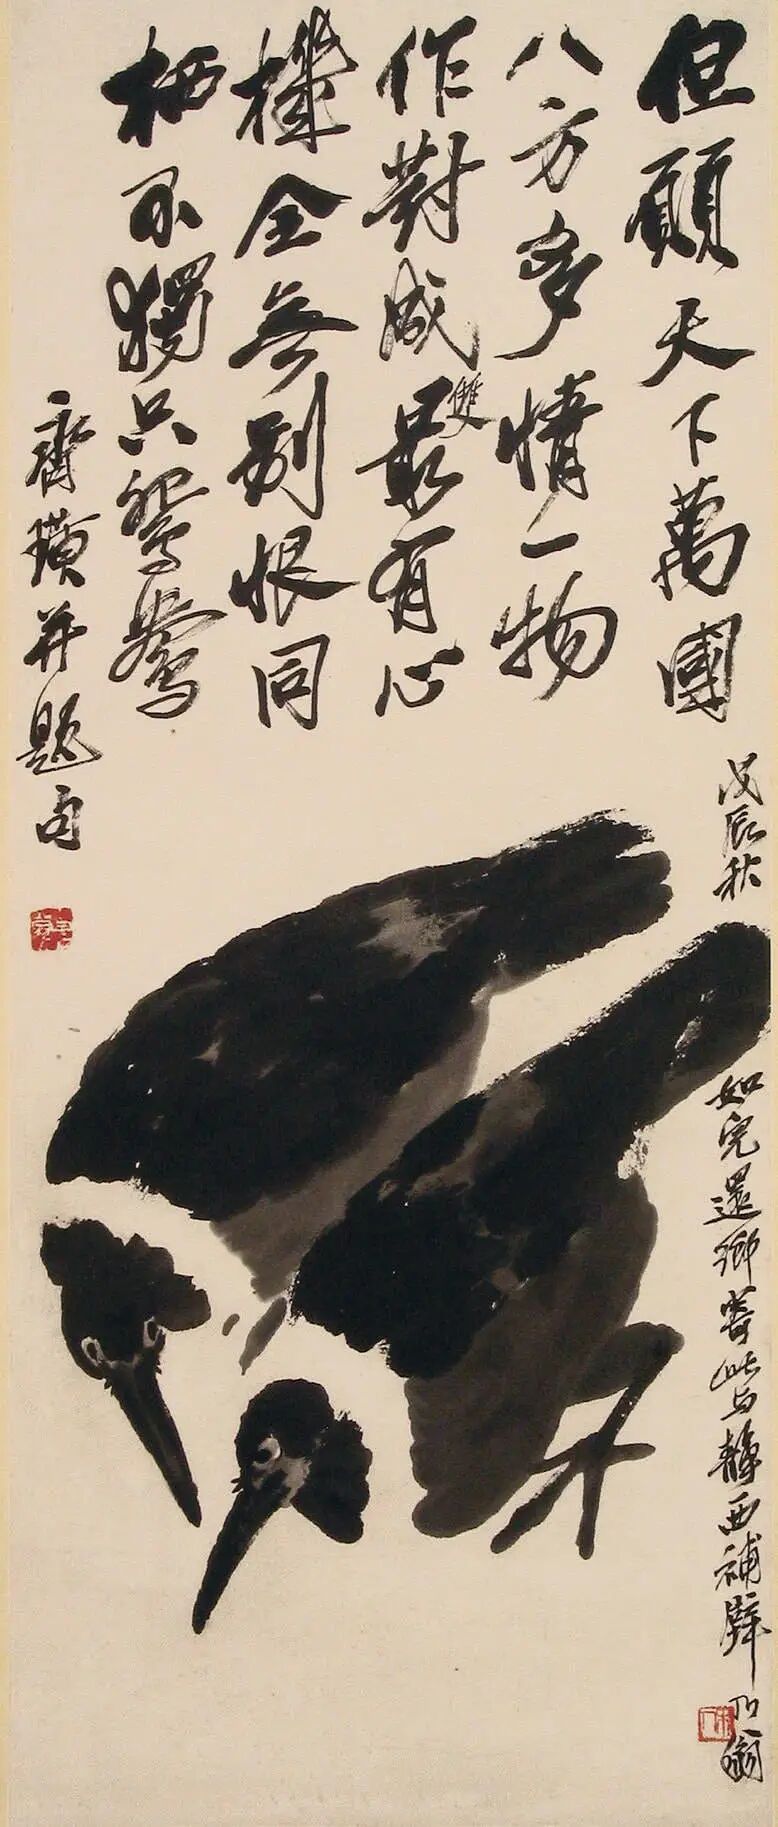 但願天下萬國
八方多情一物
作對成最有心
雙
機全無別恨同
栖不獨只鴛鴦
齊璜并題句
戊辰秋
如兒還鄉寄此与靜西補壁